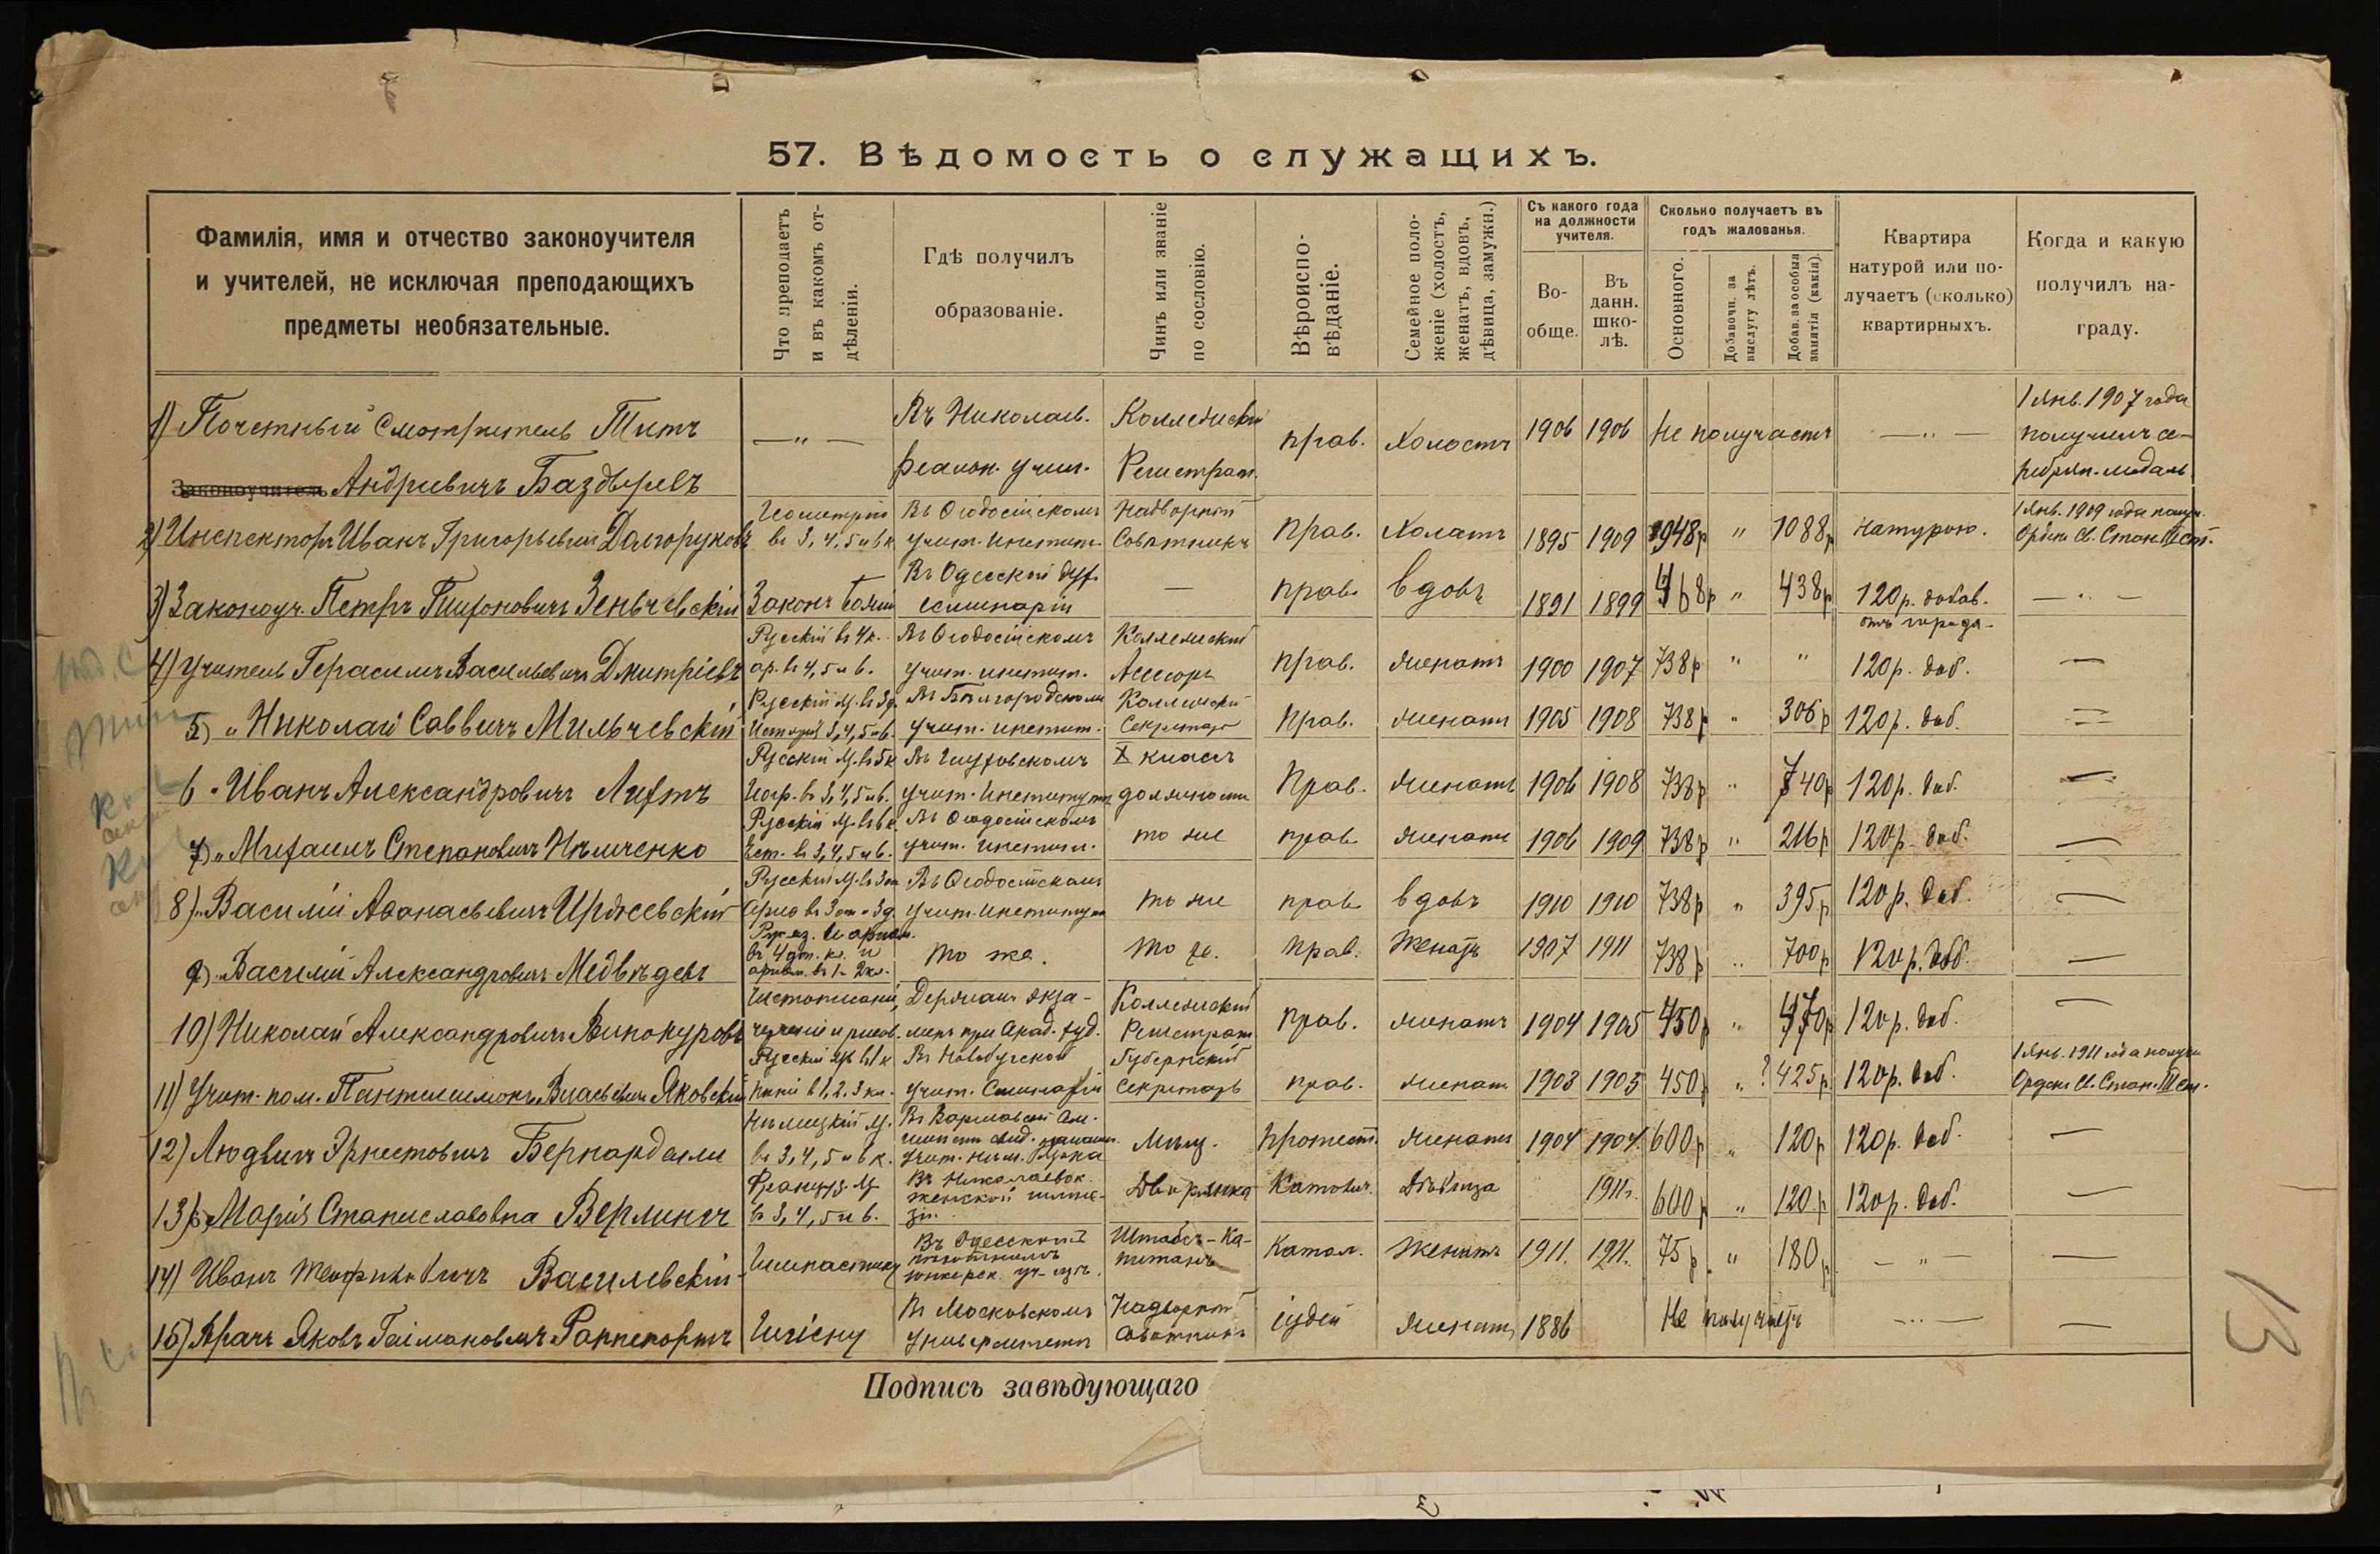 57. Вѣдомость о служащихъ.
Фамилія, имя и отчество законоучителя
и учителей, не исключая преподающихъ
предметы необязательные.
Что преподаетъ
и въ какомъ от-
дѣленіи.
Гдѣ получилъ
образованіе.
Чинъ или званіе
по сословію.
Вѣроиспо-
вѣданіе.
Семейное поло-
женіе (холостъ,
женатъ, вдовъ,
дѣвица, замужн.)
Съ какого года
на должности
учителя.
Во-
обще.
Въ
данн.
шко-
лѣ.
Сколько получаетъ въ
годъ жалованья.
Основного.
Добавочн. за
выслугу лѣтъ.
Добав. за особыя
занятія (какія)
Квартира
натурой или по-
лучаетъ (сколько)
квартирныхъ.
Когда и какую
получилъ на-
граду.
1) Почетный Смотритель Титъ
Законоучитель Андреевичъ Баздыревъ
— „ —
Въ Николаев.
реальн. учил.
Коллежскій
Регистрат.
прав. Холостъ 1906 1906 Не получаетъ — „ —
1 Янв. 1907 года
получилъ се-
ребрян. медаль
2) Инспекторъ Иванъ Григорьевичъ Долгоруковъ
Геометрій
въ 3, 4, 5 и 6 к
Въ Ѳеодосійскомъ
учит. Институт.
Надворный
Совѣтникъ
Прав. Холостъ 1895 1909 948 р „ 1088 р Натурою.
1 Янв. 1909 года получ.
Орденъ Св. Стан. III ст.
3) Законоуч. Петръ Тихоновичъ Зеньчевскій
Законъ Божій
Въ Одесской дух.
семинаріи
—
прав. вдовъ 1891 1899 468 р „ 438 р
120 р. добав.
отъ города
— „ —
4) Учитель Герасимъ Васильевичъ Дмитріевъ
Русскій въ 4 к.
ар. въ 4, 5 и 6.
Въ Ѳеодосійскомъ
учит. институт.
Коллежскій
Асессоръ
прав. женатъ 1900 1907 738 р „ „ 120 р. доб. —
5) „ Николай Саввичъ Мильчевскій
Русскій Яз. въ 3 д.
Исторія 3, 4, 5 и 6.
Въ Бѣлгородскомъ
учит. институт.
Коллежскій
Секретарь
Прав. женатъ 1905 1908 738 р „ 306 р 120 р. доб. —
6 „ Иванъ Александровичъ Лихтъ
Русскій Яз. въ 5 к
Геогр. въ 3, 4, 5 и 6.
Въ Глуховскомъ
учит. Институтѣ
X классъ
должности
Прав. женатъ 1906 1908 738 р „ 740 р 120 р. доб. —
7) „ Михаилъ Степановичъ Нѣмченко
Русскій Яз. въ 6 к.
Ест. въ 3, 4, 5 и 6.
Въ Ѳеодосійскомъ
учит. институт.
то же прав. женатъ 1906 1909 738 р „ 216 р 120 р. доб. —
8) „ Василій Аѳанасьевичъ
Русскій Яз. въ 3
Въ Ѳеодосійскомъ
учит. Институтѣ
то же прав. вдовъ 1910 1910 738 р „ 395 р 120 р. доб. —
9) „ Василій Александровичъ Медвѣдевъ
Рус. яз. и ариѳм.
въ 4 доп. кл. и
ариѳм. въ 1 и 2 кл.
то же. то же. прав. Женатъ 1907 1911 738 р „ 700 р 120 р. доб. —
10) Николай Александровичъ Винокуровъ
Чистописаній,
черченіе и рисов.
Держалъ экза-
менъ при Акад. худ.
Коллежскій
Регистрат.
прав. женатъ 1904 1905 450 р „ 470 р 120 р. доб. —
11) Учит. пом. Пантелеимонъ Власьевичъ Яковскій
Русскій Яз. въ 1 к
пѣніе въ 1, 2, 3 кл.
Въ Новобугской
учит. Семинаріи
Губернскій
секретарь
прав. женатъ 1903 1903 450 р „ ? 425 р. 120 р. доб.
1 Янв. 1911 года получ.
Орденъ Св. Стан. III ст.
12) Людвигъ Эрнестовичъ Бернардели
Нѣмецкій Яз.
въ 3, 4, 5 и 6 к.
учит. нѣм. языка
Мѣщ. Протест. женатъ 1904 1904 600 р „ 120 р 120 р. доб. —
13) Марія Станиславовна Верлингъ
Француз. Яз
въ 3, 4, 5 и 6.
Въ Николаевск.
женской гимна-
зіи.
Дворянка Католич. Дѣвица 1911 г. 600 р „ 120 р 120 р. доб. —
14) Иванъ Теофиловичъ Василевскій
Гимнастику
Въ Одесскомъ
пѣхотномъ
юнкерск. уч-щѣ.
Штабсъ-Ка-
питанъ
Катол. Женатъ 1911. 1911. 75 р. „ 180 р. — „ — —
15) Врачъ Яковъ Гаймановичъ Раппепортъ
Гигіену
Въ Московскомъ
университетѣ
Надворный
Совѣтникъ
іудей женатъ 1886 Не получаетъ — „ — —
Подпись завѣдующаго
13